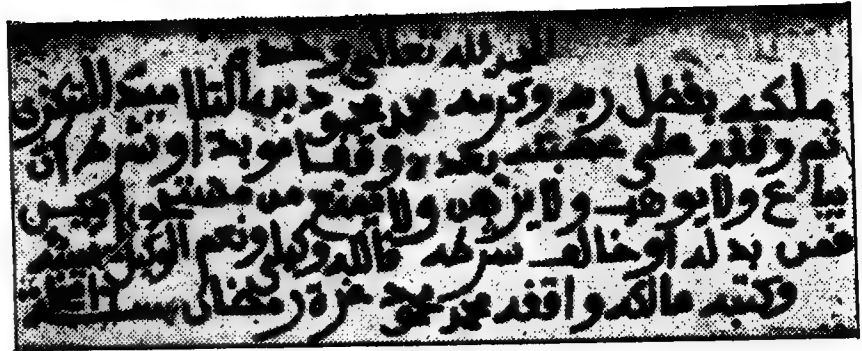 الحمد لله تعالى وحده
ملكه بفضل ربه وكرمه محمد محمود بن التلاميد التركزى
ثم وقفه على عصبته بعده وقفا مؤبدا وشرط ان
يباع ولا يوهب ولا يرهن ولا يمنع من مستحق
فمن بدله او خالف شرطه فالله وكيلى ونعم الوكيل
وكتبه مالكه واقفه محمد محمود غرة رمضان سنة